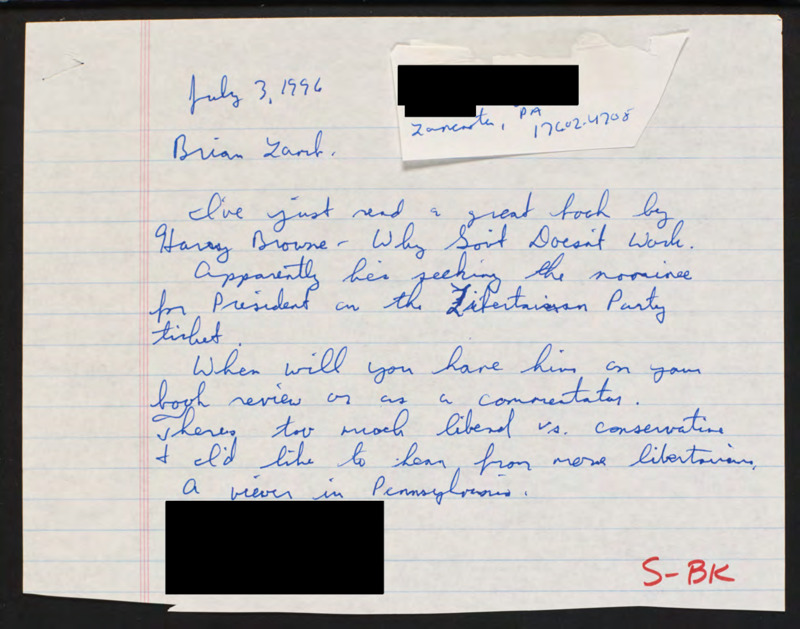 July 3, 1996
Lancaster, PA
17602-4708
Brian Lamb.
I've just read a great book by
Harry Browne - Why Govt Doesn't Work.
Apparently he's seeking the nominee
for President on the Libertarian Party
ticket.
When will you have him on your
book review or as a commentator.
Theres too much liberal vs. conservative
& I'd like to hear from more libertarians.
A viewer in Pennsylvania.
S-BK